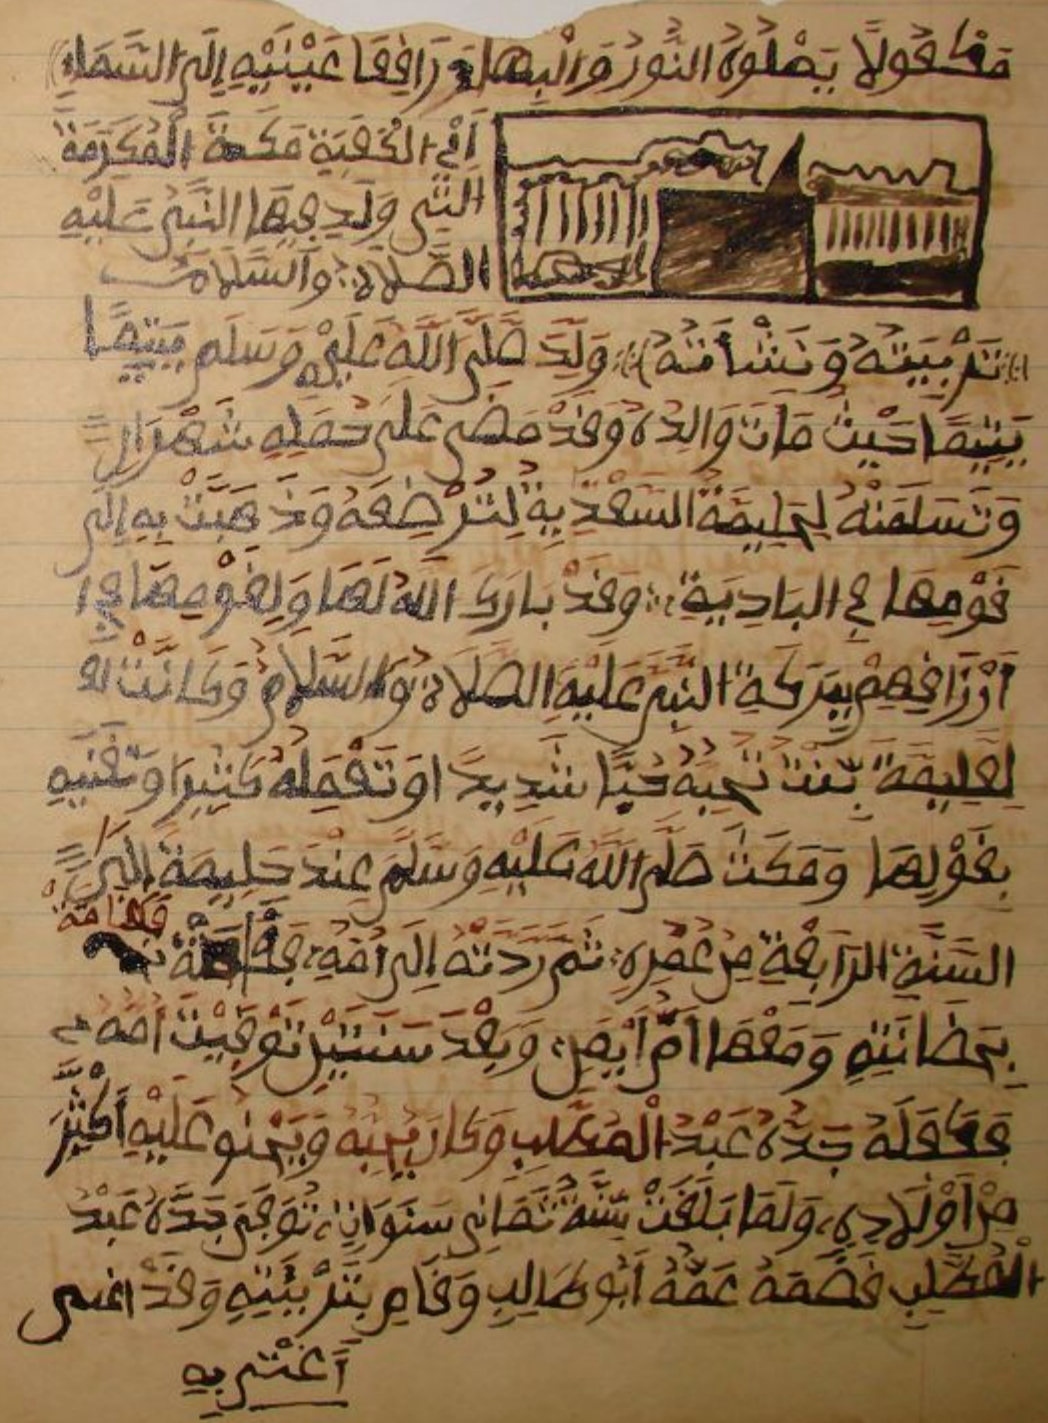 مَكفُولاً يَعْلُوهُ النُّورُ وَالْبِهَاء وَرَافِعًا عَيْنَيْهِ إِلَى السَّمَاءِ
الْكَعْبَةِ مَكَّةَ الْمُكَرَّمَةِ
التي وُلِدَ فِيهَا النَّبِيُّ عَلَيْهِ
الصَّلَاةُ وَالسَّلَامُ
تَرْبِيَتُهُ وَنَشْأَتُهُ)؛ وُلِدَ صَلَّى اللَّهُ عَلَيْهِ وَسَلَّم يَتِيمًا
يَتِيمًا حَيْثُ مَاتَ وَالِدُهُ وَقَدْ مَضَى عَلَى حَمْلِهِ شَهْرَانِ
وَتَسَلَّمَتْهُ لِحَلِيمَةُ السَّعْدِيَةُ لِتُرْضِعَهُ وَذَهَبَتْ بِهِ إِلَى
قَوْمِهَا فِي البَادِيَةِ؛ وَقَدْ بَارَكَ اللَّهُ لَهَا وَلِقَوْمِهَا فِي
أَرْزَاقِهِمْ بِبَرَكَةِ النَّبِيِّ عَلَيْهِ الصَّلَاةُ وَالسَّلَامُ وَكَانَتْ لَهُ
لِحَلِيمَةَ بِنْتٌ تُحِبُّهُ حُبًّا شَدِيدًا وَتَحْمِلُهُ كَثِيرًا وَتُغَنِّيهِ
بِقَوْلِهَا وَمَكَثَ صَلَّى اللَّهُ عَلَيْهِ وَسَلَّمَ عِنْدَ حَلِيمَةَ إِلَى
السَّنَةِ الرَّابِعَةِ مِنْ عُمْرِهِ؛ ثُمَّ رَدَّتْهُ إِلَى أُمِّهِ؛ فَقَامَتْ
بِحَضَانَتِهِ وَمَعَهَا أُمُّ أَيْمَنَ؛ وَبَعْدَ سَنَتَيْنِ تُوُفِّيَتْ أُمُّهُ
فَكَفَلَهُ جَدُّهُ عَبْدُ الْمُطَّلِبِ وَكَانَ يُحِبُّهُ وَيَحْنُو عَلَيْهِ أَكْثَرَ
مِنْ أَوْلَادِهِ، وَلَمَّا بَلَغَتْ سِنُّهُ ثَمَانِيَ سَنَوَاتٍ، تُوُفِّيَ جَدُّهُ عَبْدُ
الْمُطَّلِبِ فَضَمَّهُ عَمُّهُ أَبُو طَالِبٍ وَقَامَ بِتَرْبِيَتِهِ وَقَدْ اعتنى
اَعْتَنَى بِهِ